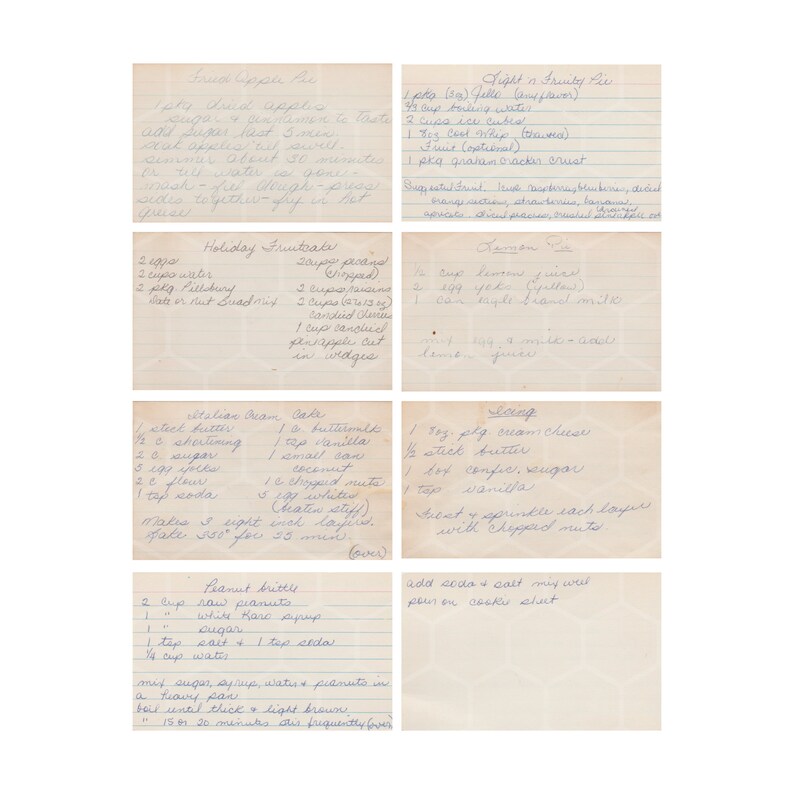 Fried Apple Pie
1 pkg dried apples
sugar & cinnamon to taste
add sugar last 5 min.
soak apples 'til swell.
simmer about 30 minutes
or til water is gone -
mash - fill dough - press
sides together - fry in hot
grease
Light 'n Fruity Pie
1 pkg (3oz) Jello (any flavor)
2/3 cup boiling water
2 cups ice cubes
1 8oz Cool Whip (thawed)
Fruit (optional)
1 pkg graham cracker crust
Suggested Fruit. 1 cup raspberry, blueberries, diced
orange sections, strawberries, banana,
apricots. diced peaches, crushed pineapple
(drained)
Holiday Fruitcake
2 eggs
2 cups water
2 pkg. Pillsbury
Date or Nut Bread mix
2 cups pecans
(chopped)
2 cups raisins
2 cups (12 to 13 oz)
candied cherries
1 cup candied
pineapple cut
in wedges
Lemon Pie
1/2 cup lemon juice
2 egg yoks (yellow)
1 can eagle brand milk
mix egg & milk - add
lemon juice
Italian Cream Cake
1 stick butter
1/2 c. shortening
2 c. sugar
5 egg yorks
2 c flour
1 tsp soda
1 c. buttermilk
1 tsp vanilla
1 small can
coconut
1 c chopped nuts
5 egg whites
(beaten stiff)
Makes 3 eight inch layers.
Bake 350° for 25 min.
(over)
Icing
1 8oz. pkg. cream cheese
1/2 stick butter
1 box confic. sugar
1 tsp vanilla
Frost & sprinkle each layer
with chopped nuts.
Peanut brittle
2 cup raw peanuts
1 " white Karo syrup
1 " sugar
1 tsp salt & 1 tsp soda
1/4 cup water
mix sugar, syrup, water & peanuts in
a heavy pan
boil until thick & light brown
" 15 or 20 minutes stir frequently (over)
add soda & salt mix well
pour on cookie sheet